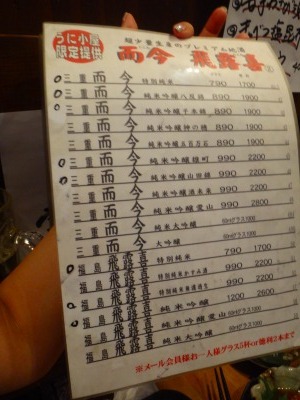 うに小屋
限定提供
超少量生産のプレミアム地酒
而今 飛露喜
三重 而今 特別純米 790 1700
三重 而今 純米吟醸八反錦 890 1900
三重 而今 純米吟醸千本錦 890 1900
三重 而今 純米吟醸神の穂 890 1900
三重 而今 純米吟醸五百万石 890 1900
三重 而今 純米吟醸雄町 990 2200
三重 而今 純米吟醸山田錦 990 2200
三重 而今 純米吟醸酒未来 990 2200
三重 而今 純米吟醸愛山 990 2800
三重 而今 純米大吟醸
三重 而今 大吟醸
福島 飛露喜 特別純米 790 1700
福島 飛露喜 特別純米かすみ酒 990 2200
福島 飛露喜 990 2200
福島 飛露喜 純米吟醸 1200 2600
福島 飛露喜 純米吟醸愛山
福島 飛露喜 純米大吟醸
※メール会員様お一人様グラス5杯or徳利2本まで